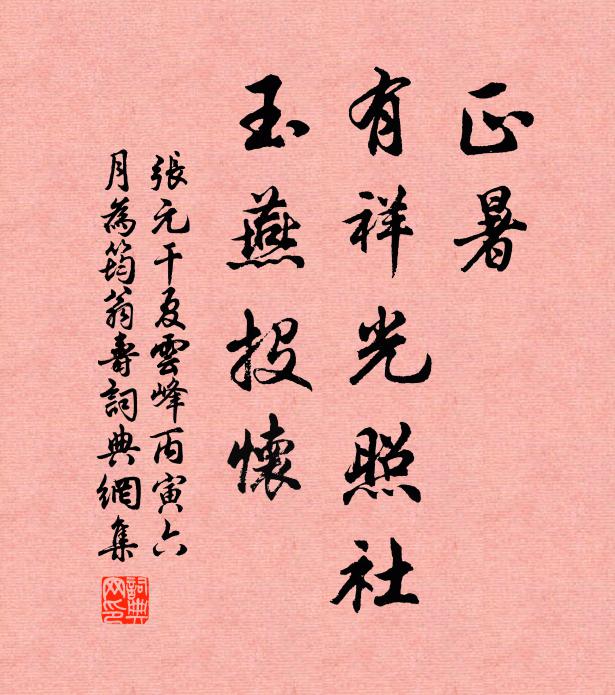 正暑
有祥光照社
玉燕投懷
張元干夏雲峰丙寅六
月為筠翁壽詞典網集
詞典
网印